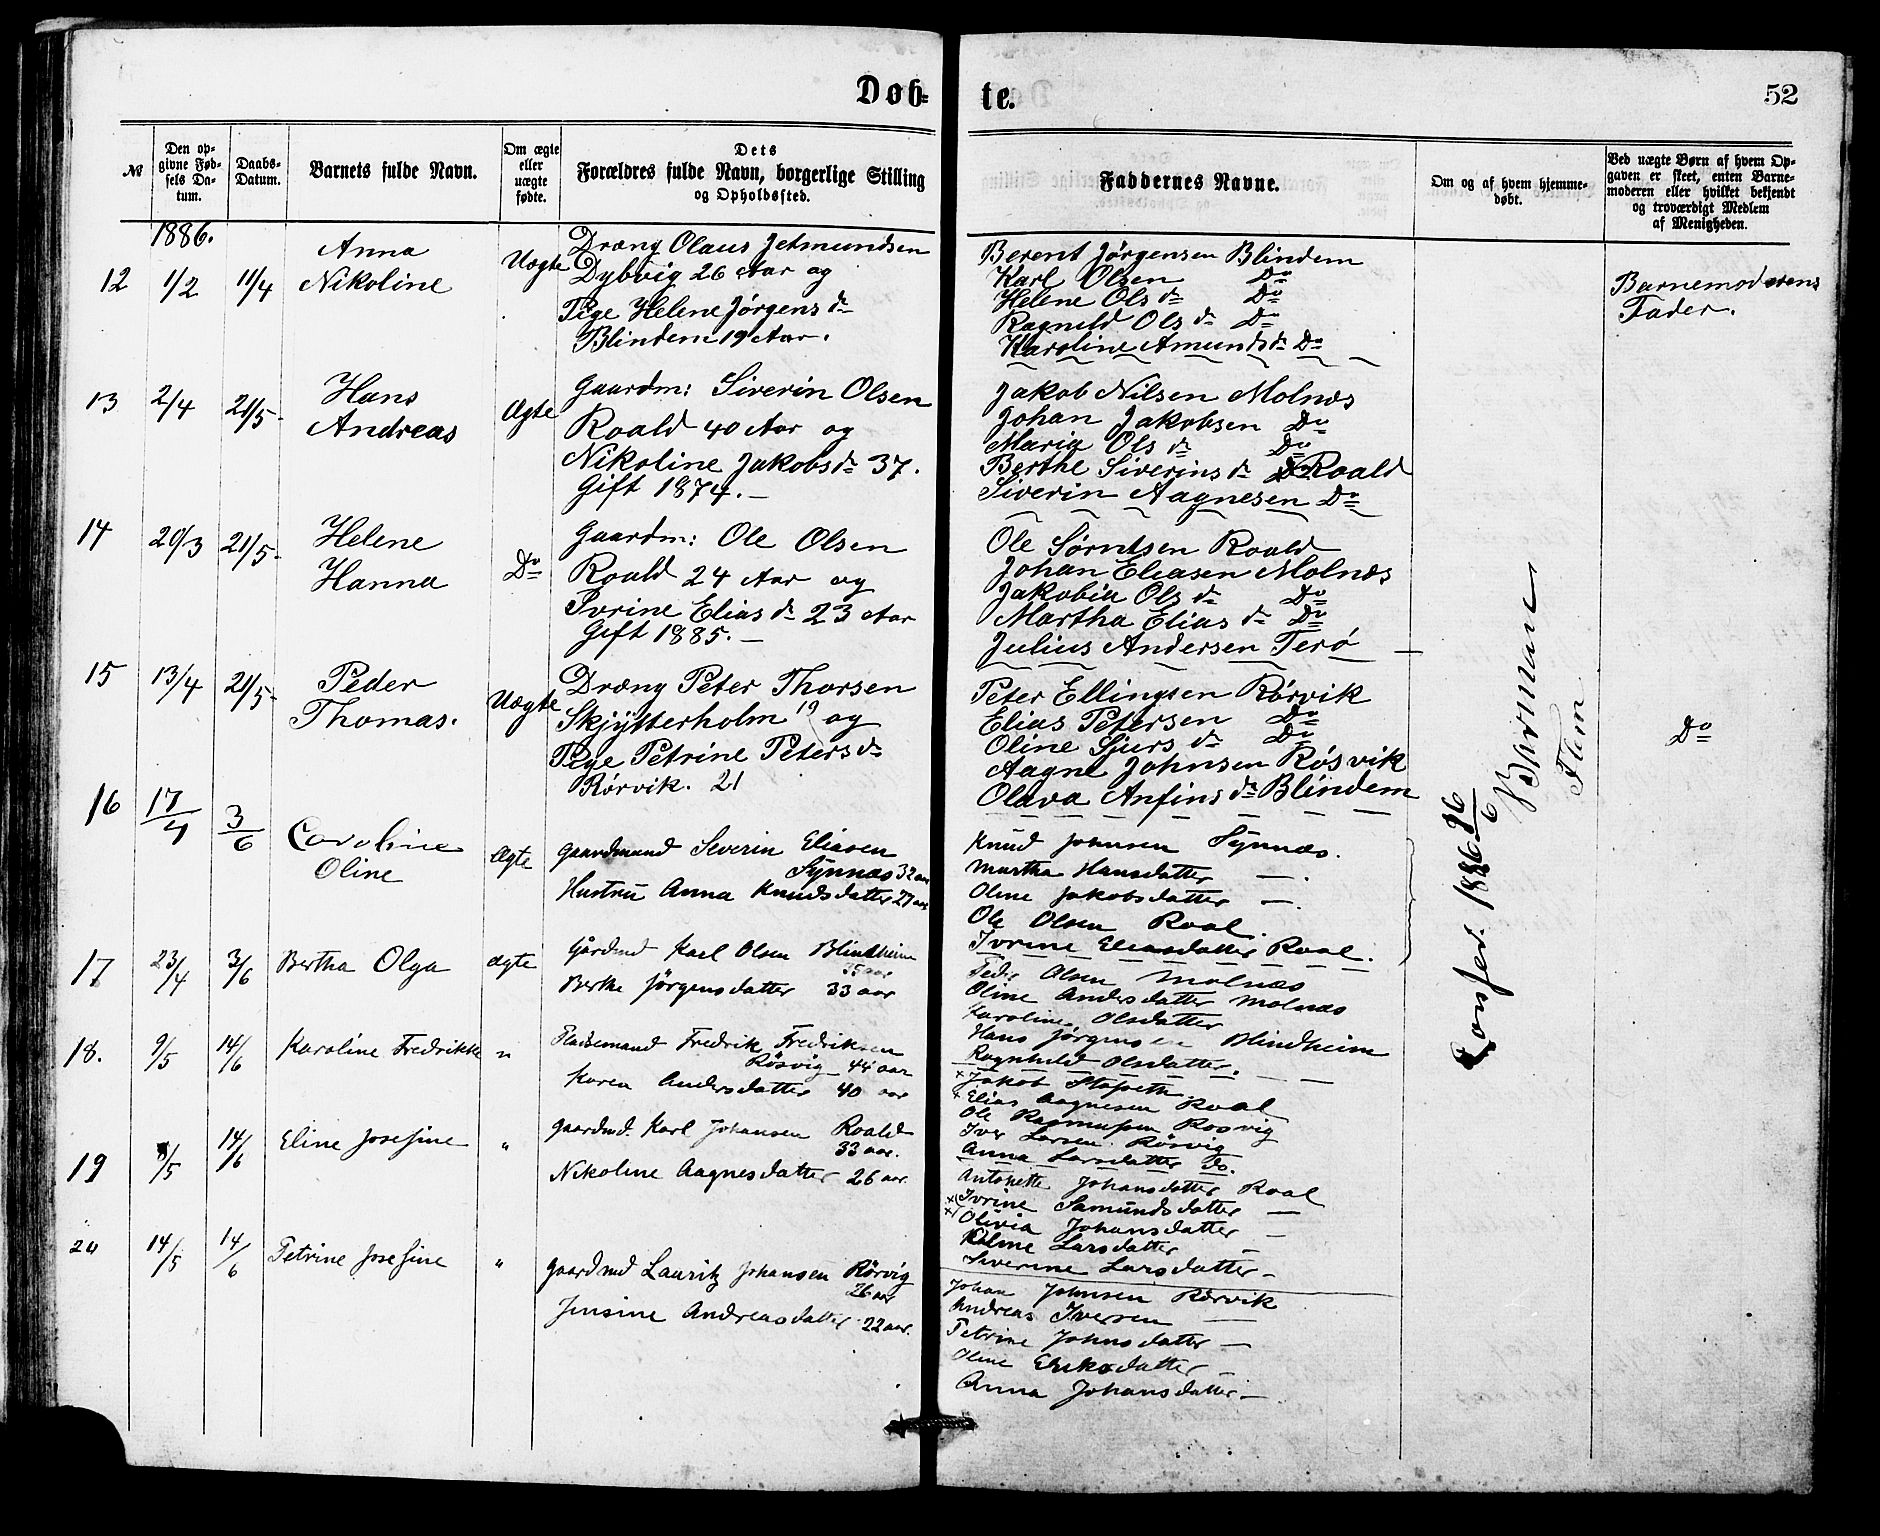 Døb-
te.
52
№
Den op-
givne Fød-
sels Da-
tum.
Daabs-
Datum.
Barnets fulde Navn.
Om ægte
eller
uægte
fødte.
Dets
Forældres fulde Navn, borgerlige Stilling
og Opholdssted.
Faddernes Navne.
Om og af hvem hjemme-
døbt.
Ved uægte Børn af hvem Op-
gaven er skeet, enten Barne-
moderen eller hvilket bekjendt
og troværdigt Medlem
af Menigheden.
1886.
12 1/2 11/4
Anna
Nikoline
Uægte
Dræng Olaus Jetmundsen
Dybvig 26 Aar og
Pige Helene Jørgens dr
Blindem 19 Aar.
Berent Jørgensen Blindem
Karl Olsen Do
Helene Ols dr Do
Ragnild Ols dr Do
Karoline Amunds dr Do
Barnemoderens
Fader.
13 2/4 21/5
Hans
Andreas
Ægte
Gaardm: Siverin Olsen
Roald 40 Aar og
Nikoline Jakobs dr 37.
Gift 1874. –
Jakob Nilsen Molnæs
Johan Jakobsen Do
Maria Ols dr Do
Berthe Siverins dr Roald
Siverin Aagnesen Do
14 20/3 21/5
Helene
Hanna
Do
Gaardm: Ole Olsen
Roald 24 Aar og
Ivrine Elias dr 23 Aar
Gift 1885. –
Ole Sørntsen Roald
Johan Eliasen Molnæs
Jakobia Ols dr Do
Martha Elias dr Do
Julius Andersen Terø
15 13/4 21/5
Peder
Thomas.
Uægte
Dræng Peter Thorsen
Skjytterholm 19 og
Pige Petrine Peters dr
Rørvik. 21
Peter Ellingsen Rørvik
Elias Petersen Do
Oline Sjurs dr Do
Aagne Johnsen Røsvik
Olava Anfins dr Blindem
Do
16 17/4 3/6
Caroline
Oline
Ægte
Gaardmand Severin Eliasen
Synnæs 32 aar
Hustru Anna Knudsdatter 27 aar
Knud Johnsen Synnæs.
Martha Hansdatter —.
Oline Jakobsdatter —.
Ole Olsen Roal.
Ivrine Eliasdatter Roal.
17 23/4 3/6
Bertha Olga
ægte
Gårdmd Karl Olsen Blindheim
35 aar
Berthe Jørgensdatter 33 aar
Peder Olsen Molnæs
Oline Andersdatter Molnæs
Karoline Olsdatter
Hans Jørgensen Blindheim
Ragnhild Olsdatter.
18. 9/5 14/6
Karoline Fredrikke
"
Pladsemand Fredrik Fredriksen
Røsvig 44 aar
Karen Andersdatter 40 aar
× Jakob Stafseth
× Elias Aagnesen Roal
Ole Rasmussen Rosvig
Iver Larsen Rösvig
Anna Larsdatter do.
19 8/5 14/6
Eline Josefine
"
Gaardmd. Karl Johansen Roald
33 aar.
Nikoline Aagnesdatter 26 aar
Antonette Johansdatter Roal
Ivrine Samundsdatter —
Olivia Johansdatter —
Larsdatter —
Siverine Larsdatter —
20 14/5 14/6
Petrine Josefine
"
gaardmd Lauritz Johansen Rörvig
26 aar
Jensine Andreasdatter 22 aar.
Johan Johnsen Rörvik
Andreas Iversen —
Petrine Johnsdatter —
Oline Eriksdatter —
Anna Johansdatter —
Confer. 1886 26/6
Barmann
Flem